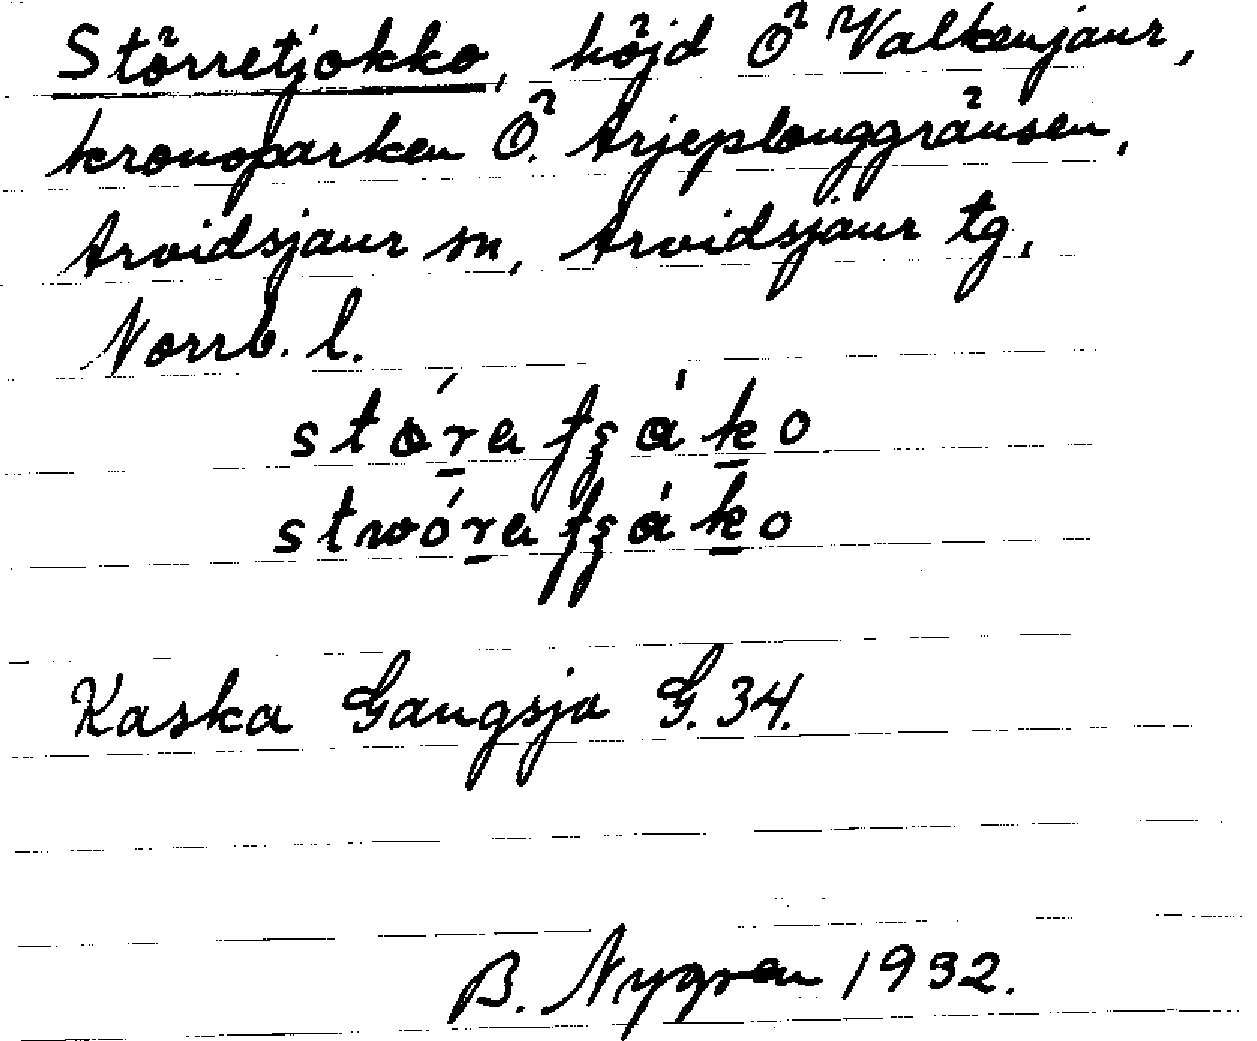 Störretjokko, höjd Ö Valkenjaur,
kronoparken Ö. Arjeplouggränsen,
Arvidsjaur sn, Arvidsjaur tg,
Norrb. l.
Kaska Gangsja G. 34.
B. Nygren 1932.